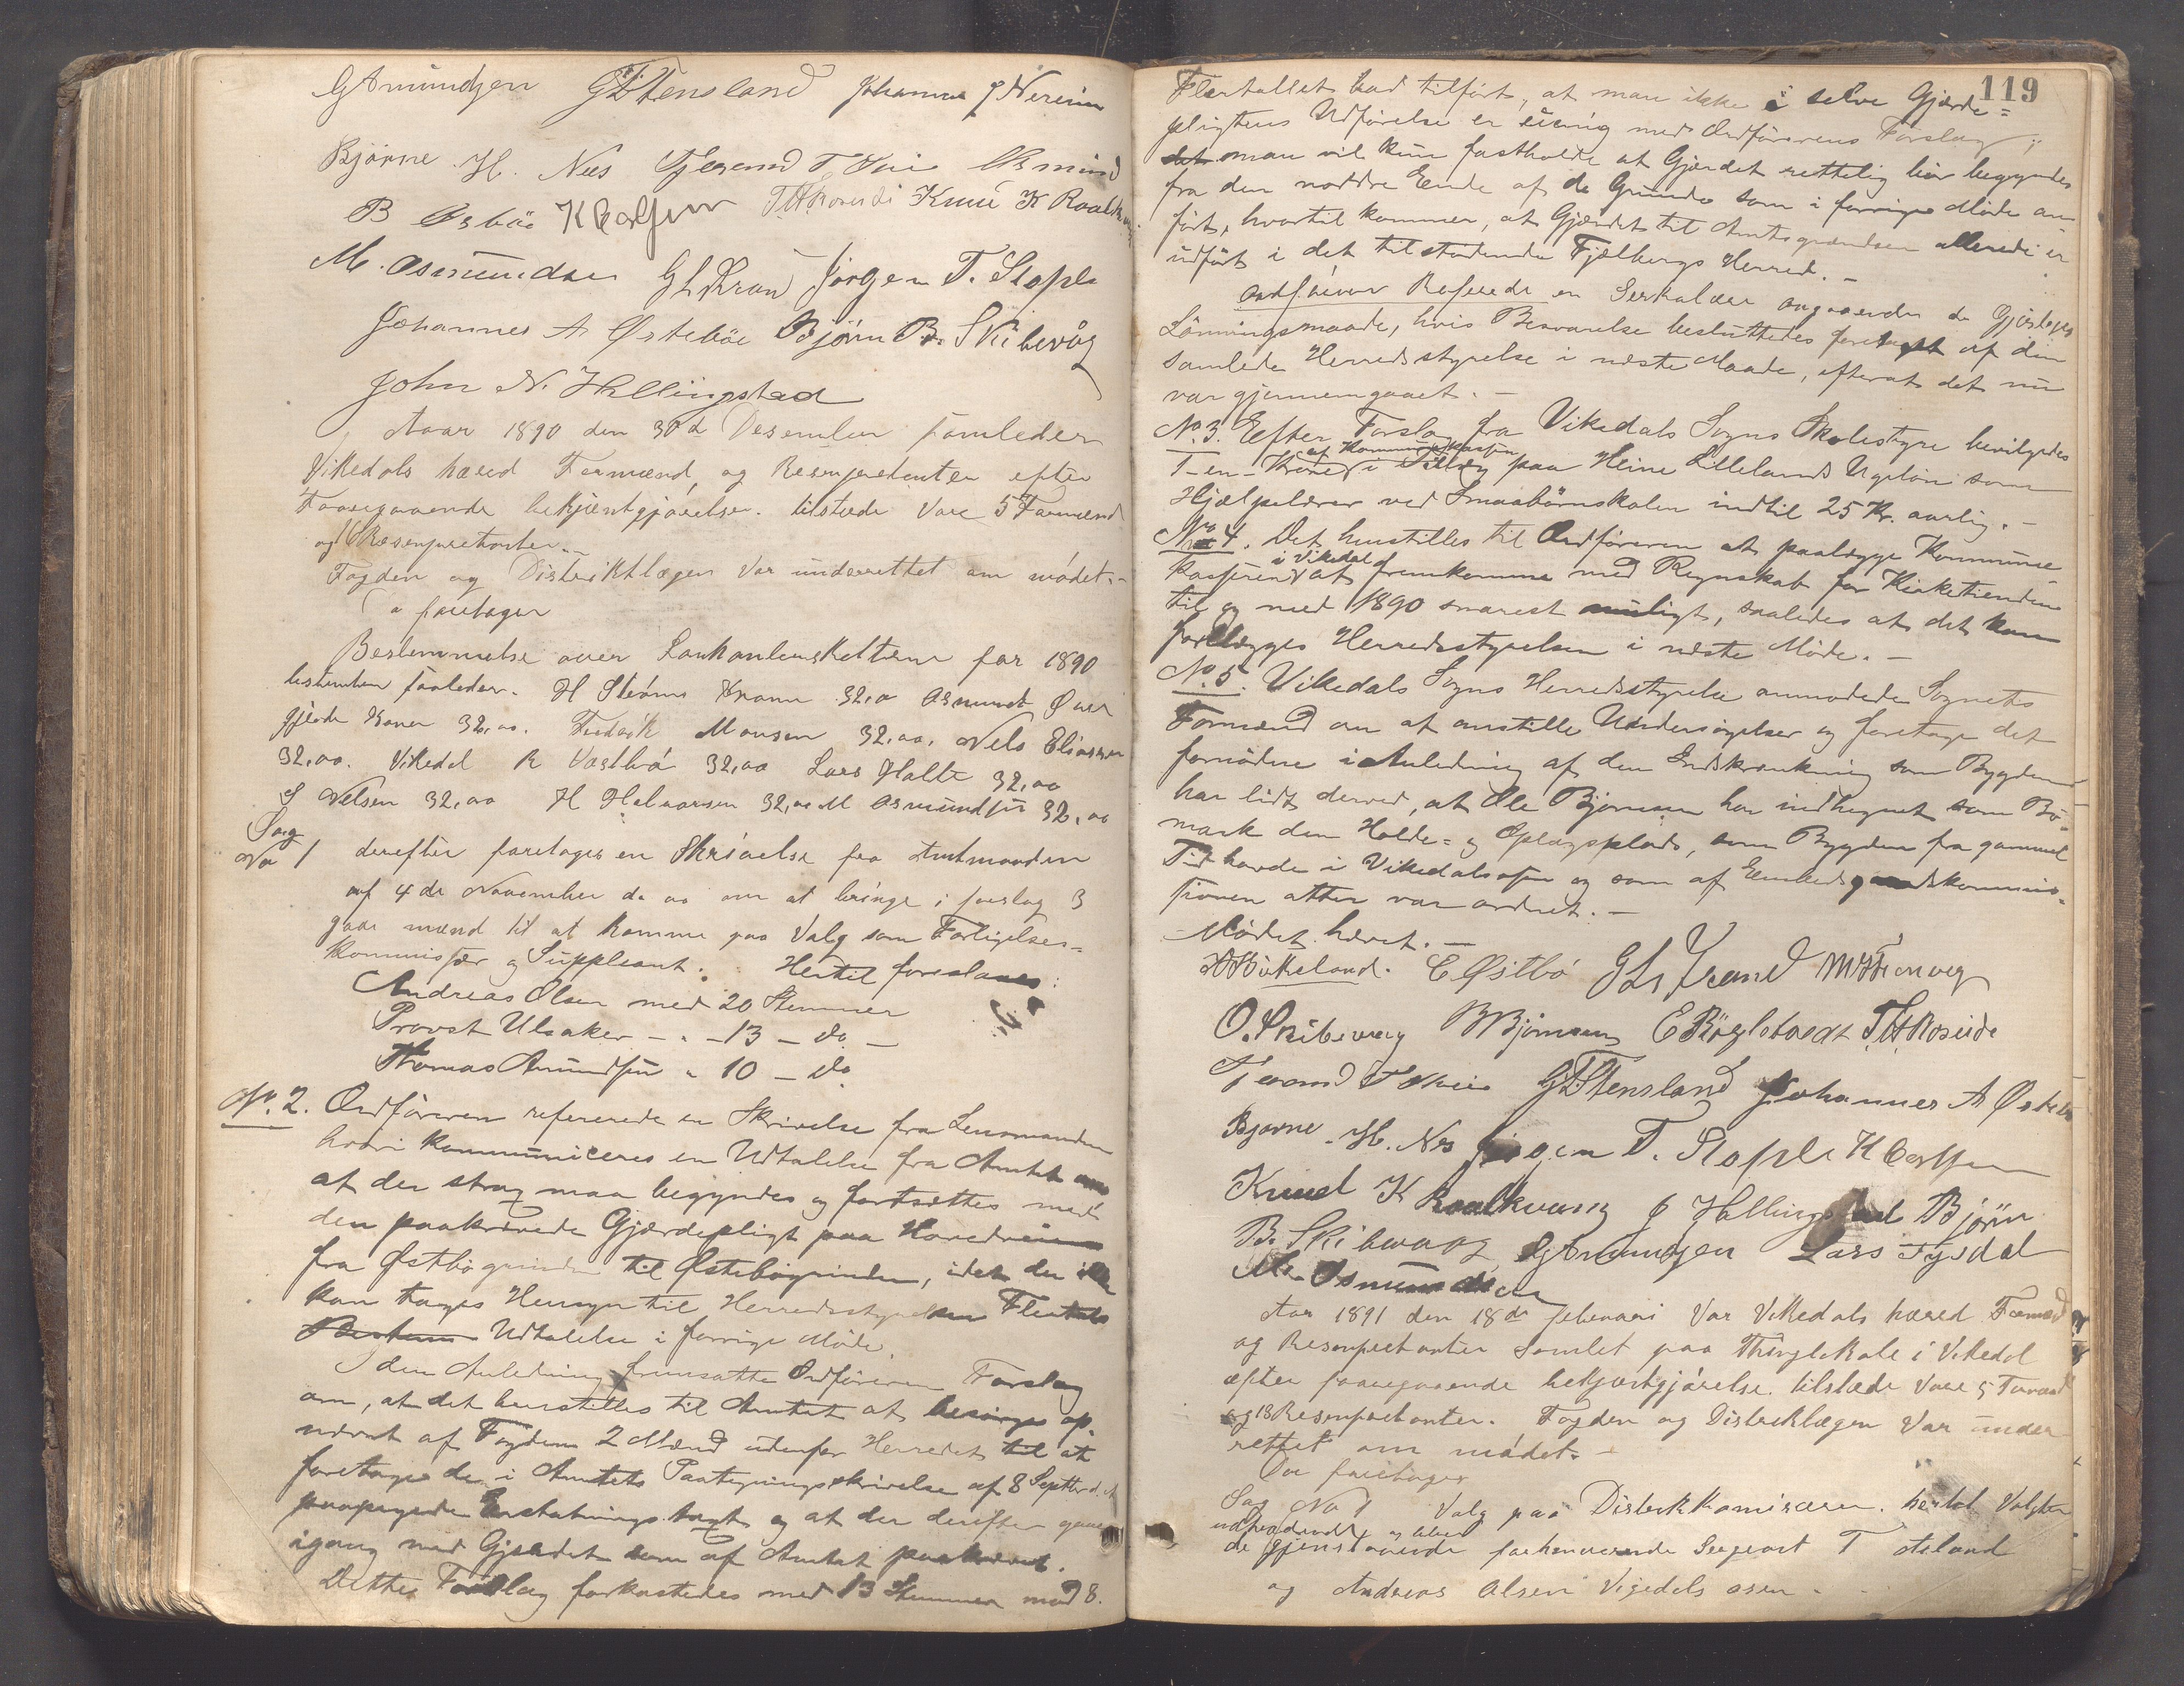 G Amundsen G T Stensland Johannes J Nereim
Bjørne H. Næs Tjerand T Øvie Asmund
B Østbø K Carlsen T H Roseide Knud K Raalkvang
M. Asmundsen G L Kran Jørgen T. Stople
Johannes A Østebøe Bjørn B. Skibevåg
John N. Hallingstad
Aaar 1890 den 30d Desember samleder
Vikedals hæred Formænd, og Resenpredenter efter
Foaregaaende bekjæntgjørelse. tilstede Vare 5 Formænd
og Resenpretanter.
Fogden og Distriktlægen Var underrettet om mødet.
Da foretoges
Bestemmelse over Lonkonlenskettene for 1890
bestemtem saaleder. H Strøms Krone 32,00 Asmundt Øver
gjerde Kaner 32,00. Fredrik Monsen 32,00. Nels Eliassen
32,00. Vikedal R Vastbø 32,00 Lars Halle 32,00
S Nelsen 32,00 H Halvorsen 32,00 M Asmundsen 32,00
Sag
No 1 derefter foretoges en Skrivelse fra Amtmanden
af 4de November d. aa om at bringe i forslag 3
gode mænd til at komme paa Valg som Forligelses-
Kommissær og Suppleant. Hertil foresloges:
Andreas Olsen med 20 Stemmer
Provst Ulsaker - " - 13 - do -
Thomas Amundsen " 10 - do
No. 2. Ordføreren refererede en Skrivelse fra Lensmanden
hvori kommuniceres en Udtalelse fra Amtet om
at der strax maa begyndes og fortsættes med
den paakrævede Gjærdepligt paa Hovedveien
fra Østbøgrinden til Østebøgrinden, idet der ikke
kan tages Hensyn til Herredsstyrelsens Flertals
Bestem Udtalelse i forrige Møde.
I den Anledning fremsatte Ordføreren Forslag
om, at det henstilles til Amtet at besørge op-
nævnt af Fogden 2 Mænd udenfor Herredet til at
foretage de i Amtets Paategningsskrivelse af 8 Septbr d. A
paapegede Erstatningstaxt og at der derefter gaaes
igang med Gjærdet som af Amtet paakrævet.
Dettes Forslag forkastedes med 13 Stemmer mod 8.
119
Flertallet bad tilført, at man ikke i selve Gjærde=
pligtens Udførelse er uenig med Ordførerens Forslag;
det man vil kun fastholde at Gjærdet rettelig bør begyndes
fra den nordre Eende af de Grunde som i forrige Møde an-
ført, hvortil kommer, at Gjærdet til Amtsgrændsen allerede er
udført i det tilstødende Fjelbergs Herred. -
Ordføreren Refererede en Serkulære angaaende de Gjestliges
Lønningsmaade, hvis Besvarelse besluttedes foretaget af den
samlede Herredsstyrelse i næste Maade, efterat det nu
var gjennemgaaet. -
No. 3. Efter Forslag fra Vikedals Sogns Skolestyre bevilgedes
af Kommunekassen
1 - en - Krone i Tillæg paa Heine Lillelands Ugeløn som
Hjælpelærer ved Smaabørnskolen indtil 25 Kr. aarlig. -
No 4. Det henstilles til Ordføreren at paalægge Kommune-
i Vikedal
kasseren at fremkomme med Regnskab for Kirketienden
til og med 1890 snarest muligt, saaledes at det kan
forelægges Herredsstyrelsen i næste Møde. -
No. 5. Vikedals Sogns Herredsstyrelse anmodede Sognets
Formænd om at anstille Undersøgelser og foretage det
fornødne i Anledning af den Indskrænkning som Bygden
har lidt derved, at Ole Bjørnsen har indhegnet som Bø-
mark den Holde= og Oplagsplads, som Bygden fra gammel
Tid havde i Vikedalsosen og som af Embedsgaardskommis-
sionen atter var ordnet. -
Mødet hævet. -
H Bökeland. E Østbø G L Kran M H Honveg
O. Skibevaag B Bjørnsen E Bøgletvedt T H Roseide
Tjerand T Øvie G T Stensland Johannes A Østebø
Bjørne H. Næs Jørgen T. Stople K Carlsen
Knud K Raalkvang J Hallingstad Bjørn
B. Skibevaag G Amundsen Lars Tysdal
M. Osmundsen
Aar 1891 den 18de februari Var Vikedals hæred Formænd
og Resenpretanter samlet paa Thinglokale i Vikedal
æfter foaregaaende bekjæntgjørelse. tilstæde Vare 5 Formænd
og 18 Resenpretanter. Fogden og Distriklægen Var under
rettet om mødet. -
Da foretoges
Sag No 1 Valg paa Distrikkomisæren. hertil Valgtes
udtrædende og blev
de gjenstaaende forhenværende Sergeant T Aeland
og Andreas Olsen Vigedals osen.